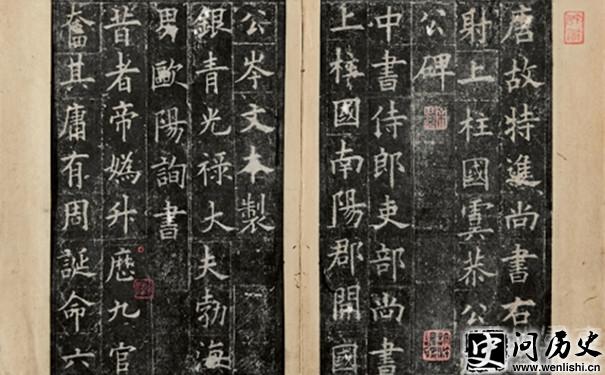 唐故特進尚書右
射上柱國虞恭公
公碑
中書侍郎吏部尚書
上柱國南陽郡開國
公岑文本製
銀青光祿大夫勃海
男歐陽詢書
昔者帝媯升歷九官
奮其庸有周誕命六
问历史
www.wenlishi.cn